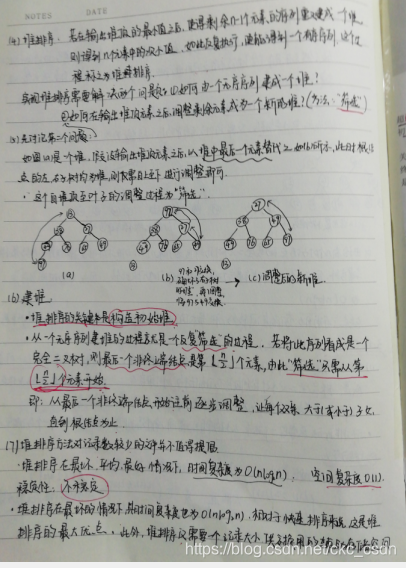 NOTES DATE
(4) 堆排序: 若在输出堆顶的最小值之后, 使得剩余n-1个元素的序列重又建成一个堆,
则得到n个元素中的次小值. 如此反复执行, 便能得到一个有序序列, 这个
过程称之为堆排序.
实现堆排序需要解决两个问题: ①如何由一个无序序列建成一个堆?
②如何在输出堆顶元素之后, 调整剩余元素成为一个新的堆? (方法: "筛选")
(5) 先讨论第二个问题:
如图a是个堆, 假设输出堆顶元素之后, 以堆中最后一个元素替代之, 如图b所示, 此时根结
点的左、右子树均为堆, 则仅需自上至下进行调整即可.
· 这个自堆顶至叶子的调整过程为"筛选".
(a)
(b)
(c) 调整后的新堆
(6) 建堆
· 堆排序的关键是构造初始堆
· 从一个无序序列建堆的过程就是一个反复"筛选"的过程. 若将此序列看成是一个
完全二叉树, 则最后一个非终端结点是第⌊n/2⌋个元素, 由此"筛选"只需从第
⌊n/2⌋个元素开始.
即: 从最后一个非终端结点开始往前逐步调整, 让每个双亲大于(或小于)子女,
直到根结点为止.
(7) 堆排序方法对记录数较少的文件并不值得提倡
· 堆排序在最坏、平均、最好情况下, 时间复杂度为O(nlog₂n), 空间复杂度O(1).
稳定性: 不稳定
· 堆排序在最坏的情况下, 其时间复杂度也为O(nlog₂n), 相对于快速排序来说, 这是堆
排序的最大优点. 此外, 堆排序仅需要一个记录大小供交换用的辅助存储空间
https://blog.csdn.net/ckc_csdn